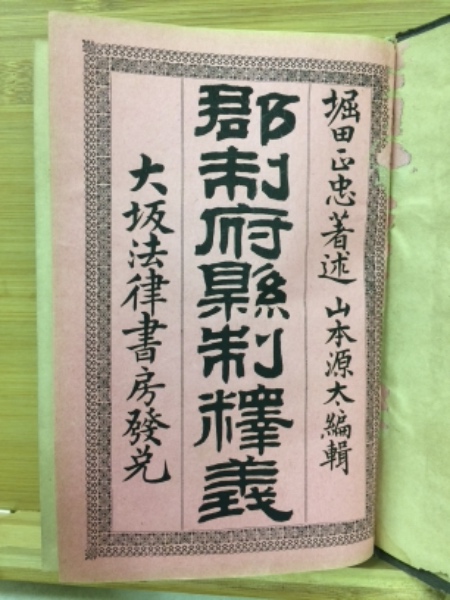 堀田正忠著述 山本源太編輯
郡制府縣制釋義
大坂法律書房發兌